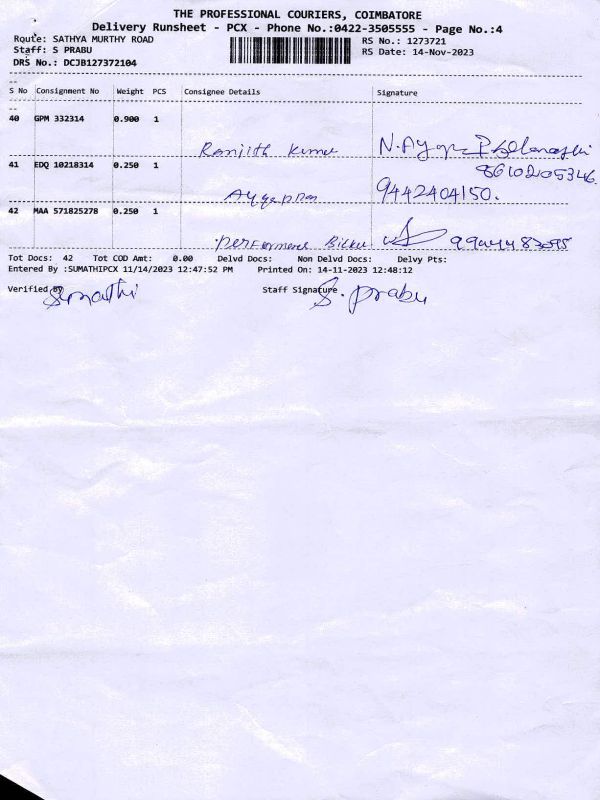 THE PROFESSIONAL COURIERS, COIMBATORE
Delivery Runsheet - PCX - Phone No.:0422-3505555 - Page No.:4
Route: SATHYA MURTHY ROAD RS No.: 1273721
Staff: S PRABU RS Date: 14-Nov-2023
DRS No.: DCJB127372104
S No Consignment No Weight PCS Consignee Details Signature
40 GPM 332314 0.900 1
Ranjith Kumar N.Ayya
41 EDQ 10218314 0.250 1
9442404150.
42 MAA 571825278 0.250 1
Performance
Tot Docs: 42 Tot COD Amt: 0.00 Delvd Docs: Non Delvd Docs: Delvy Pts:
Entered By :SUMATHIPCX 11/14/2023 12:47:52 PM Printed On: 14-11-2023 12:48:12
Verified By Sumathi Staff Signature S. Prabu